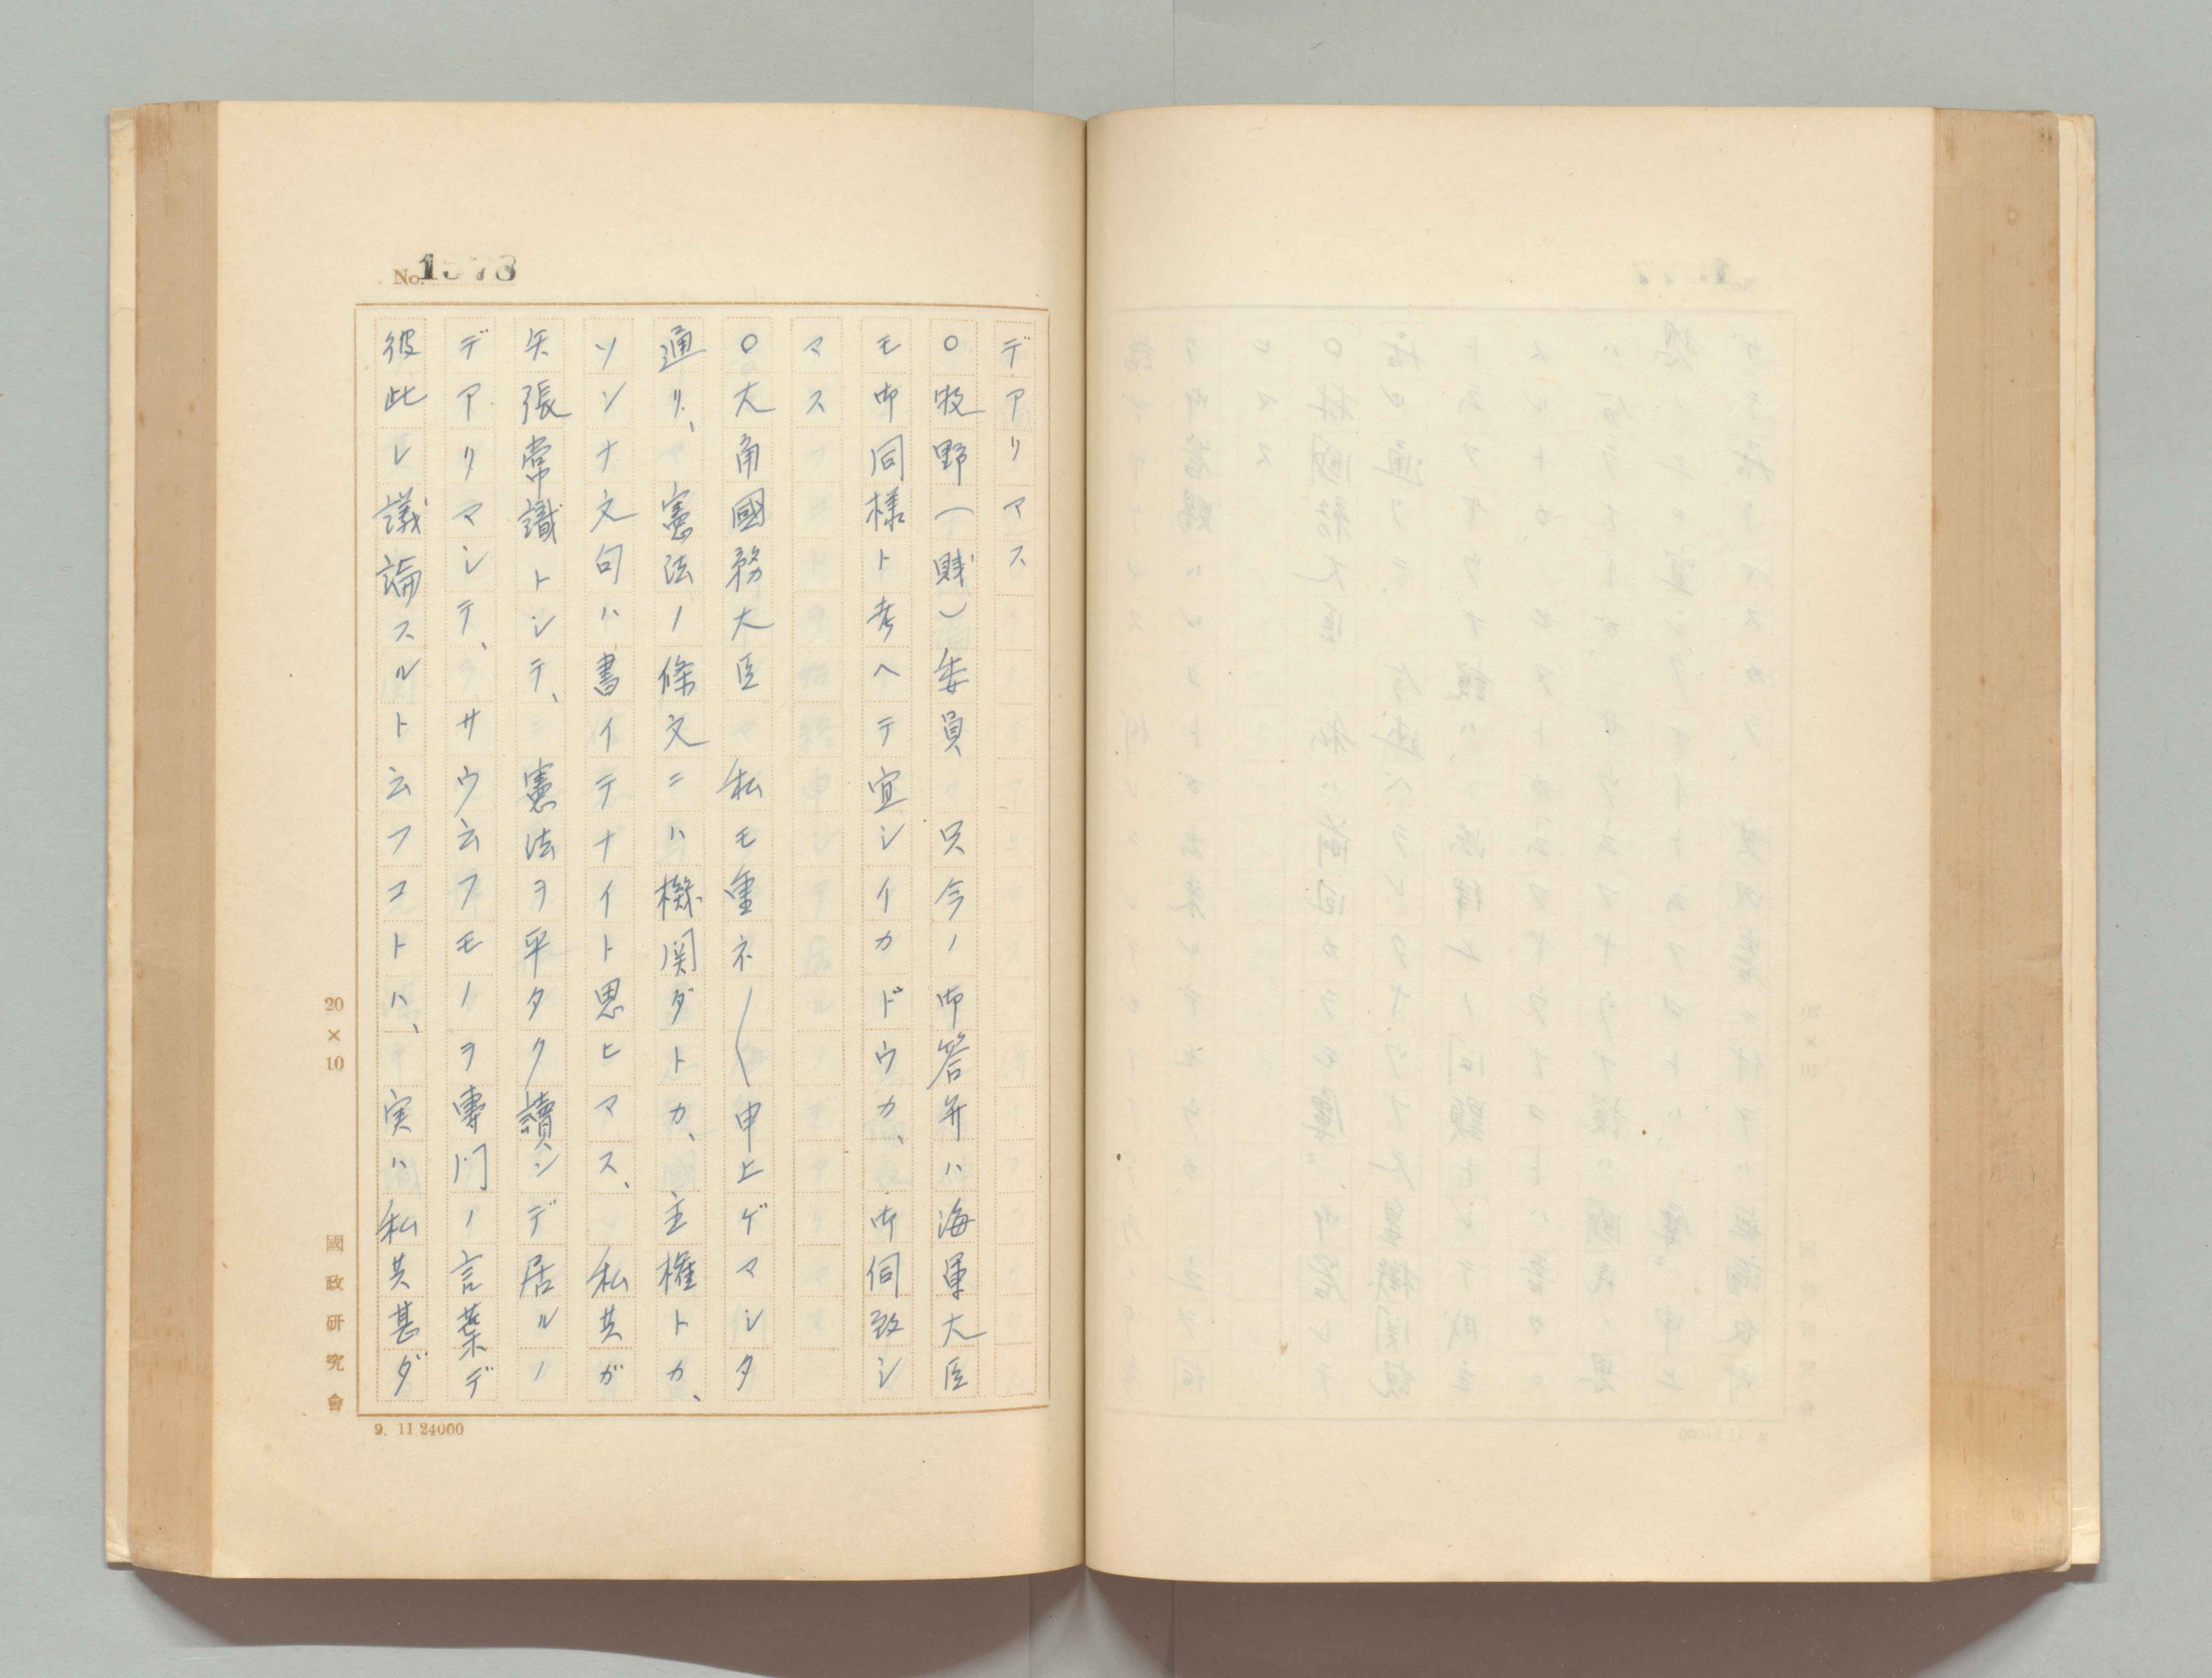 No.1573
デアリマス
○牧野(賤)委員 只今ノ御答弁ハ海軍大臣
モ御同様ト考ヘテ宜シイカドウカ、御伺致シ
マス
○大角國務大臣 私モ重ネ〱申上ゲマシタ
通リ、憲法ノ條文ニハ機関ダトカ、主権トカ、
ソンナ文句ハ書イテナイト思ヒマス、私共ガ
矢張常識トシテ、憲法ヲ平タク讀ンデ居ルノ
デアリマシテ、サウ云フモノヲ専門ノ言葉デ
彼此レ議論スルト云フコトハ、実ハ私共甚ダ
20×10
國政研究會
9. 11 24000